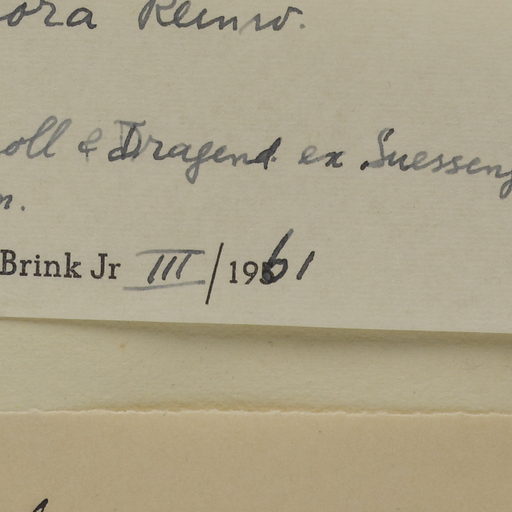 ora Reinw.
oll & Dragend. ex Suesseng
n.
Brink Jr III/1961